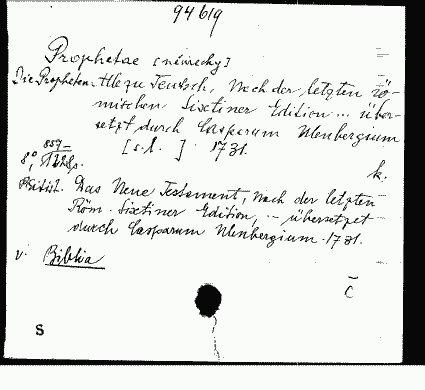 94 b 19
Prophetae [německy]
Die Propheten. Alle zu Teutsch, Nach der letzten rö-
mischen Sixtiner Edition ... über-
setzt durch Casparum Ulenbergium
[s. l. ] 1731.
8°, 859
k.
Das Neue Testament, Nach der letzten
Röm. Sixtiner Edition, ... übersetzet
durch Casparum Ulenbergium. 1731.
v. Biblia
C
S